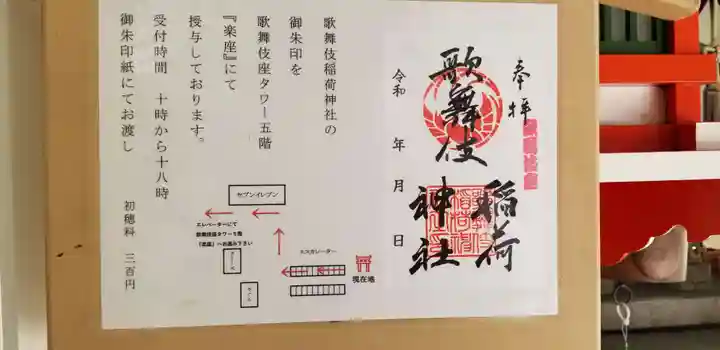 奉拝
歌舞伎
稲荷
神社
令和 年 月 日
歌舞伎稲荷神社の
御朱印を
歌舞伎座タワー五階
『楽座』にて
授与しております。
受付時間 十時から十八時
御朱印紙にてお渡し
初穂料 三百円
セブンイレブン
エレベーターにて
歌舞伎座タワー5階
「楽座」へお進み下さい
エスカレーター
現在地